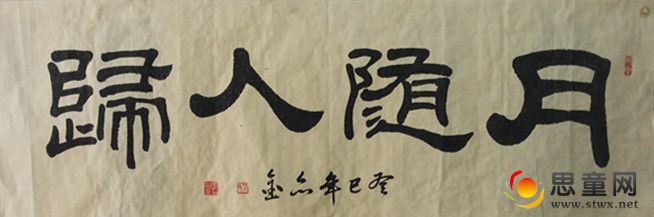 月随人歸
癸巳年
思童网
www.stwx.net